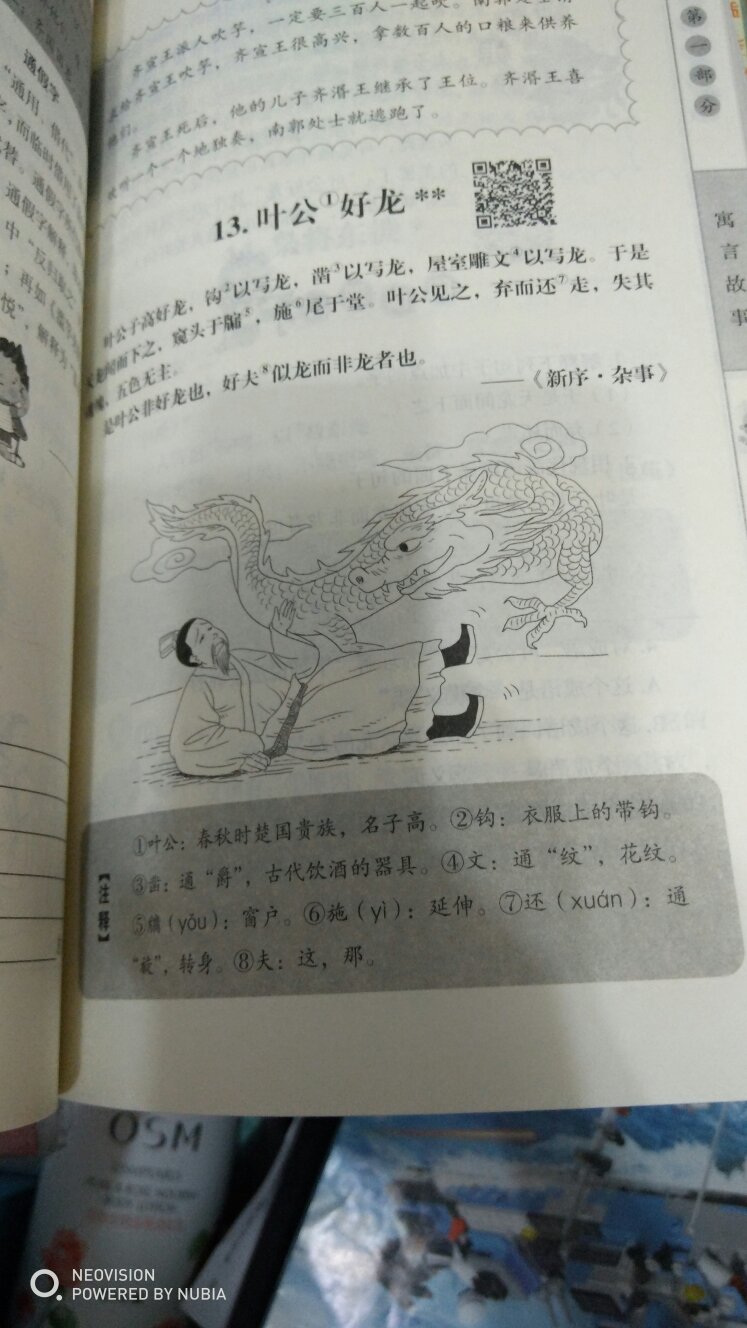 通假字
“通用、借代”
，而临时
替。通假字
通假字解释
中“反归
；再如《
悦”，解释为
齐宣王派人吹竽，一定要三百人一起吹。南郭处士
给齐宣王吹竽，齐宣王很高兴，拿数百人的口粮来供养
他们。
齐宣王死后，他的儿子齐湣王继承了王位。齐湣王喜
欢听一个一个地独奏，南郭处士就逃跑了。
第一部分
寓言故事
13.叶公①好龙**
叶公子高好龙，钩²以写龙，凿³以写龙，屋室雕文⁴以写龙。于是
龙闻而下之，窥头于牖⁵，施⁶尾于堂。叶公见之，弃而还⁷走，失其
魂魄，五色无主。
是叶公非好龙也，好夫⁸似龙而非龙者也。
——《新序·杂事》
【注释】
①叶公：春秋时楚国贵族，名子高。②钩：衣服上的带钩。
③凿：通“爵”，古代饮酒的器具。④文：通“纹”，花纹。
⑤牖（yǒu）：窗户。⑥施（yì）：延伸。⑦还（xuán）：通
“旋”，转身。⑧夫：这，那。
OSM
NEOVISION
POWERED BY NUBIA